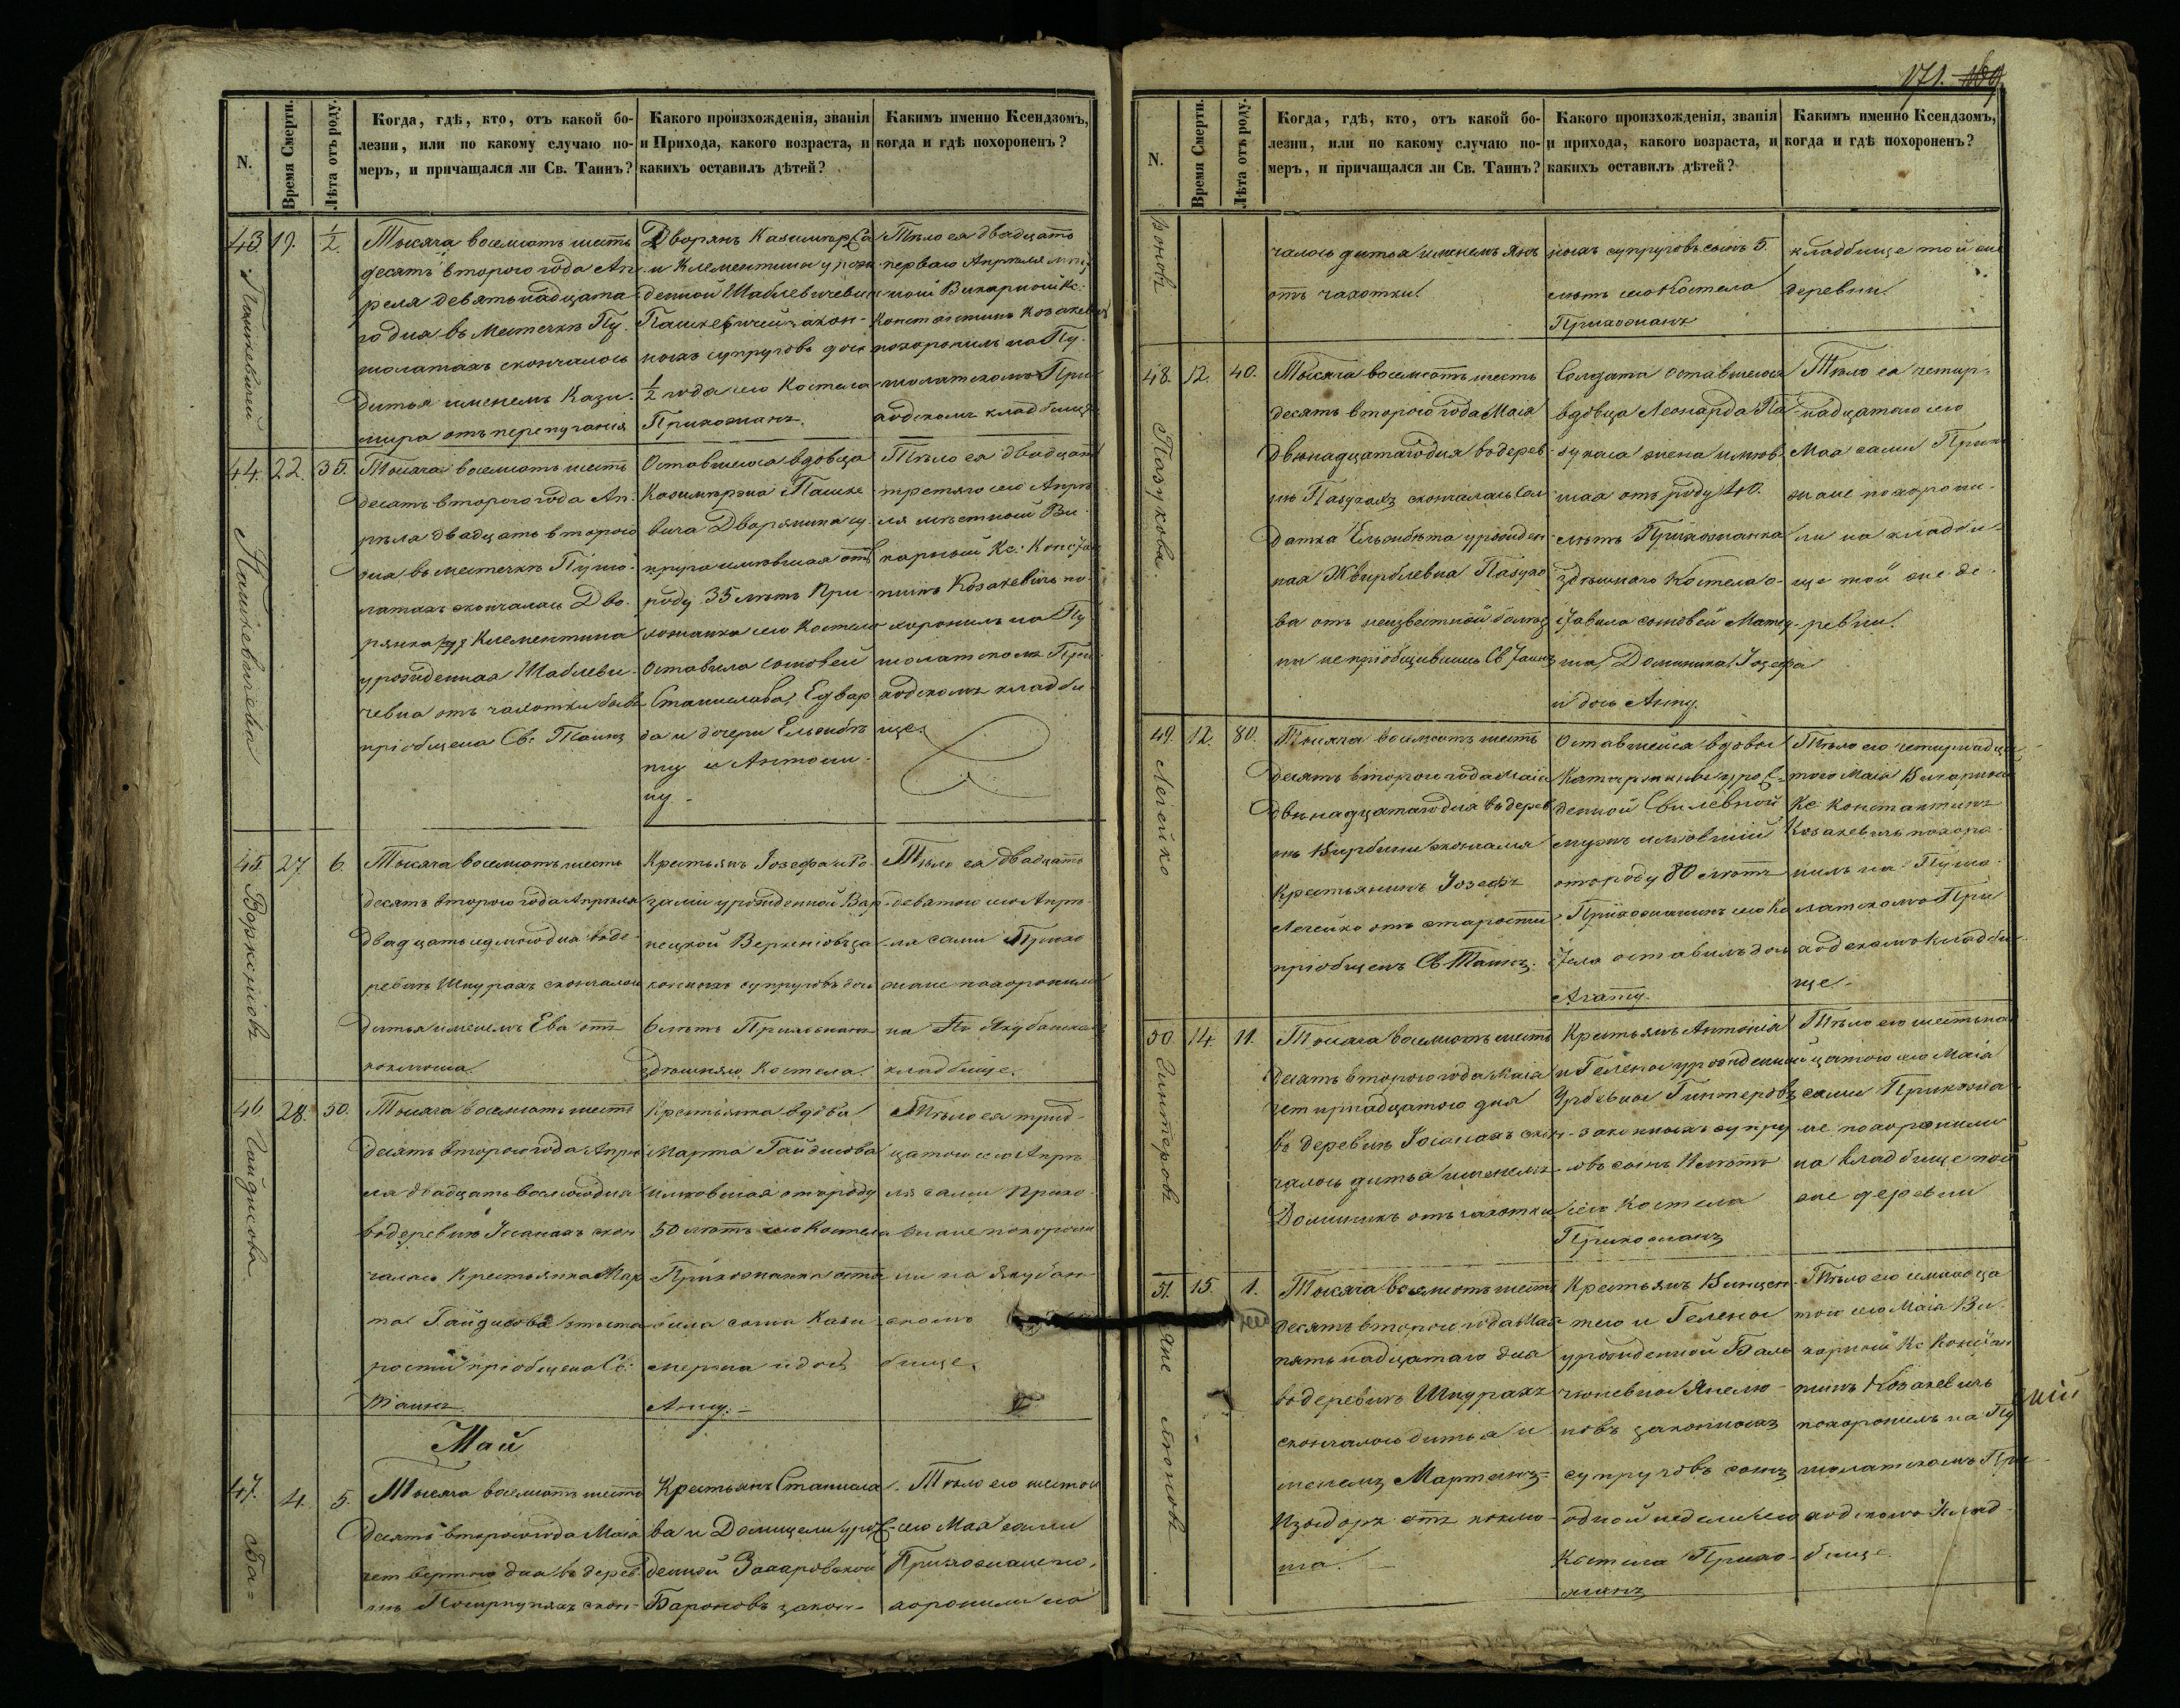 171. 169
N.
Время Смерти.
Лѣта отъ роду.
Когда, гдѣ, кто, отъ какой бо-
лезни, или по какому случаю по-
меръ, и причащался ли Св. Таинъ?
Какого произхожденія, званія
и Прихода, какого возраста, и
какихъ оставилъ дѣтей?
Какимъ именно Ксендзомъ,
когда и гдѣ похороненъ?
43
Пашкевичей
19.
1/2.
Тысяча восемсотъ шесть
десятъ второго года Ап-
реля девятьнадцата
го дня въ местечкѣ Пу-
шолатахъ скончалось
дитья именемъ Кази-
мира отъ перепуганія
Дворянъ Казимира
и Клементины урож
денной Шаблевичевны
Пашкевичей закон-
ныхъ супруговъ дочь
1/2 года сего Костела
Прихожанъ.
Тѣло ея двадцать
перваго Апрѣля мѣст
ный Викарный Кс:
Константинъ Козакевичъ
похоронилъ на Пу-
шолатскомъ При
ходскомъ кладбищѣ
44.
Пашкевичева
22.
35.
Тысяча восемсотъ шесть
десятъ второго года Ап-
рѣла двадцать второго
дня въ местечкѣ Пушо-
латахъ скончалась Дво-
рянка Клементина
урожденная Шаблеви-
чевна отъ чахотки бывъ
пріобщена Св. Таинъ
Оставшегося вдовца
Казимѣра Пашке
вича Дворянина су-
пруга имѣвшая отъ
роду 35 лѣтъ При-
хожанка сего Костела
Оставила сыновей
Станислава, Едвар
да и дочери Ельжбѣ
ту и Антони-
ну.
Тѣло ея двадцать
третяго сего Апрѣ
ля мѣстный Ви-
карный Кс: Констан
тинъ Козакевичъ по-
хоронилъ на Пу
шолатскомъ При
ходскомъ кладби-
ще.
45.
27.
6.
Тысяча восемсотъ шесть
десятъ второго года Апрѣля
двадцать седмого дня въ де-
ревнѣ Шкурахъ скончалось
дитья именемъ Ева отъ
коклюша.
Крестьянъ Іозефа и Ро-
заліи урожденной Вар-
нецкой
конныхъ супруговъ дочь
6 лѣтъ Прихожанъ
здѣшняго Костела.
Тѣло ея двадцать
девятого сего Апрѣ-
ля сами Прихо
жане похоронили
на Якубанскомъ
кладбище.
46.
Гайдисова.
28.
50.
Тысяча восемсотъ шесть
десятъ второго года Апрѣ
ля двадцать восмого дня
въ деревнѣ Іосанахъ скон
чалась Крестьянка Мар
та Гайдисова отъ ста
рости пріобщена Св:
Таинъ
Крестьянка вдова
Марта Гайдисова
имѣвшая отъ роду
50 лѣтъ сего Костела
Прихожанка оста
вила сына Кази
мера и дочь
Анну.
Тѣло ея трид-
цатого сего Апрѣ
ля сами Прихо-
жане похорони
ли на Якубан-
скомъ
бище.
Май
47.
Ба=
4.
5.
Тысяча восемсотъ шесть
десятъ второго года Маія
четвертого дня въ дерев
нѣ скон-
Крестьянъ Станисла
ва и Домицели урож
денной Захаровской
Бароновъ закон-
Тѣло его шестого
сего Мая сами
Прихожане по-
хоронили на
N.
Время Смерти.
Лѣта отъ роду.
Когда, гдѣ, кто, отъ какой бо-
лезни, или по какому случаю по-
меръ, и причащался ли Св. Таинъ?
Какого произхожденія, званія
и прихода, какого возраста, и
какихъ оставилъ дѣтей?
Какимъ именно Ксендзомъ,
когда и гдѣ похороненъ?
роновъ
чалось дитья именемъ Янъ
отъ чахотки.
ныхъ супруговъ сынъ 5
лѣтъ сего Костела
Прихожанъ
кладбище той же
деревни.
48.
Пазукова.
12.
40.
Тысяча восемсотъ шесть
десятъ второго года Маія
двѣнадцатаго дня въ дерев-
нѣ Пазукахъ скончалась Сол
датка Ельжбѣта урожден
ная Жвирблевна Пазуко
ва отъ неизвестной болѣз
ни непріобщившись Св Таинъ
Солдата оставшегося
вдовца Леонарда Па-
зукаса жена имѣв-
шая отъ роду 40.
лѣтъ Прихожанка
здѣшнаго Костела о-
ставила сыновей Мате-
уша, Доминика, Іозефа
и дочь Анну.
Тѣло ея четыр-
надцатого сего
Мая сами Прихо
жане похорони-
ли на кладби-
ще той же де-
ревни.
49.
Легейко
12.
80.
Тысяча восемсотъ шесть
десятъ второго года Маія
двѣнадцатаго дня въ дерев
нѣ скончался
Крестьянинъ Іозефъ
Легейко отъ старости
пріобщенъ Св Таинъ.
Оставшейся вдовы
Катарины уро-
денной
мужъ имѣвшій
отъ роду 80 лѣтъ
Прихожанинъ сего Ко
стела оставилъ дочь
Агату.
Тѣло его четырнадца
того Маія Викарный
Кс Константинъ
Козакевичъ похоро-
нилъ на Пушо-
латскомъ При
ходскомъ кладби-
ще.
50
Гинтеровъ
14.
11.
Тысяча восемсотъ шесть
десятъ второго года Маія
четырнадцатого дня
въ деревнѣ Іосанахъ скон-
чалось дитья именемъ
Доминикъ отъ чахотки
Крестьянъ Антонія
и Гелены урожденной
Урбевны Гинтеровъ
законныхъ супру
говъ сынъ 11 лѣтъ
сего Костела
Прихожанъ
Тѣло его шестьна
цатого сего Маія
сами Прихожа
не похоронили
на кладбище той
же деревни
51.
15.
1.
нед
Тысяча восемсотъ шесть
десятъ второго года Мая
пятьнадцатаго дня
въ деревнѣ Шкурахъ
скончалось дитья и-
менемъ Мартинъ=
Изыдоръ отъ коклю-
ша.
Крестьянъ Винцен-
тего и Гелены
урожденной Баль
чюневны Янелю-
новъ законныхъ
супруговъ сынъ
одной недели сего
Костела Прихо-
жанъ
Тѣло его семнадца
того сего Маія Ви-
карный Кс Констан
тинъ Козакевичъ
похоронилъ на Пу
шолатскомъ При-
ходскомъ Клад-
бище.